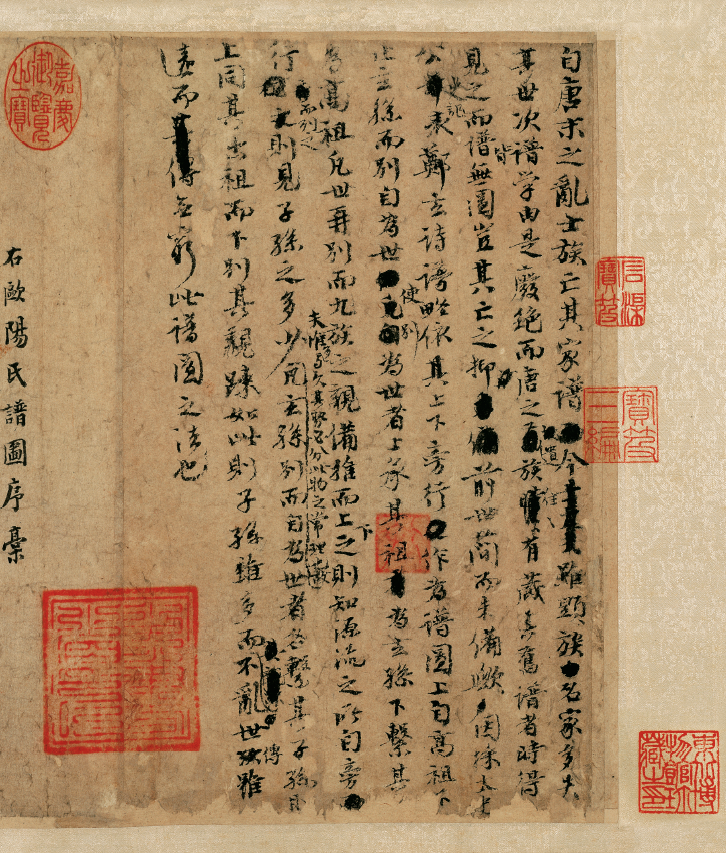 石渠寶笈
寶笈三編
東北博物館珍藏之印
自唐末之亂士族亡其家譜今雖顯族名家多失
其世次譜學由是廢絕而唐之遺族往往有藏其舊譜者時得
見之而譜皆無圖豈其亡之抑前世簡而未備歟因採太史
公史記表鄭玄詩譜略依其上下旁行作為譜圖上自高祖下
止玄孫而別自為世使別為世者上承其祖為玄孫下繫其
為高祖凡世再別而九族之親備推而上下之則知源流之所自旁
行而列之則見子孫之多少夫惟多與久其勢必分此物之常理也凡玄孫別而自為世者各繫其子孫則
上同其出祖而下別其親疎如此則子孫雖多而不亂世傳雖
遠而無窮此譜圖之法也
嘉慶御覽之寶
右歐陽氏譜圖序稾